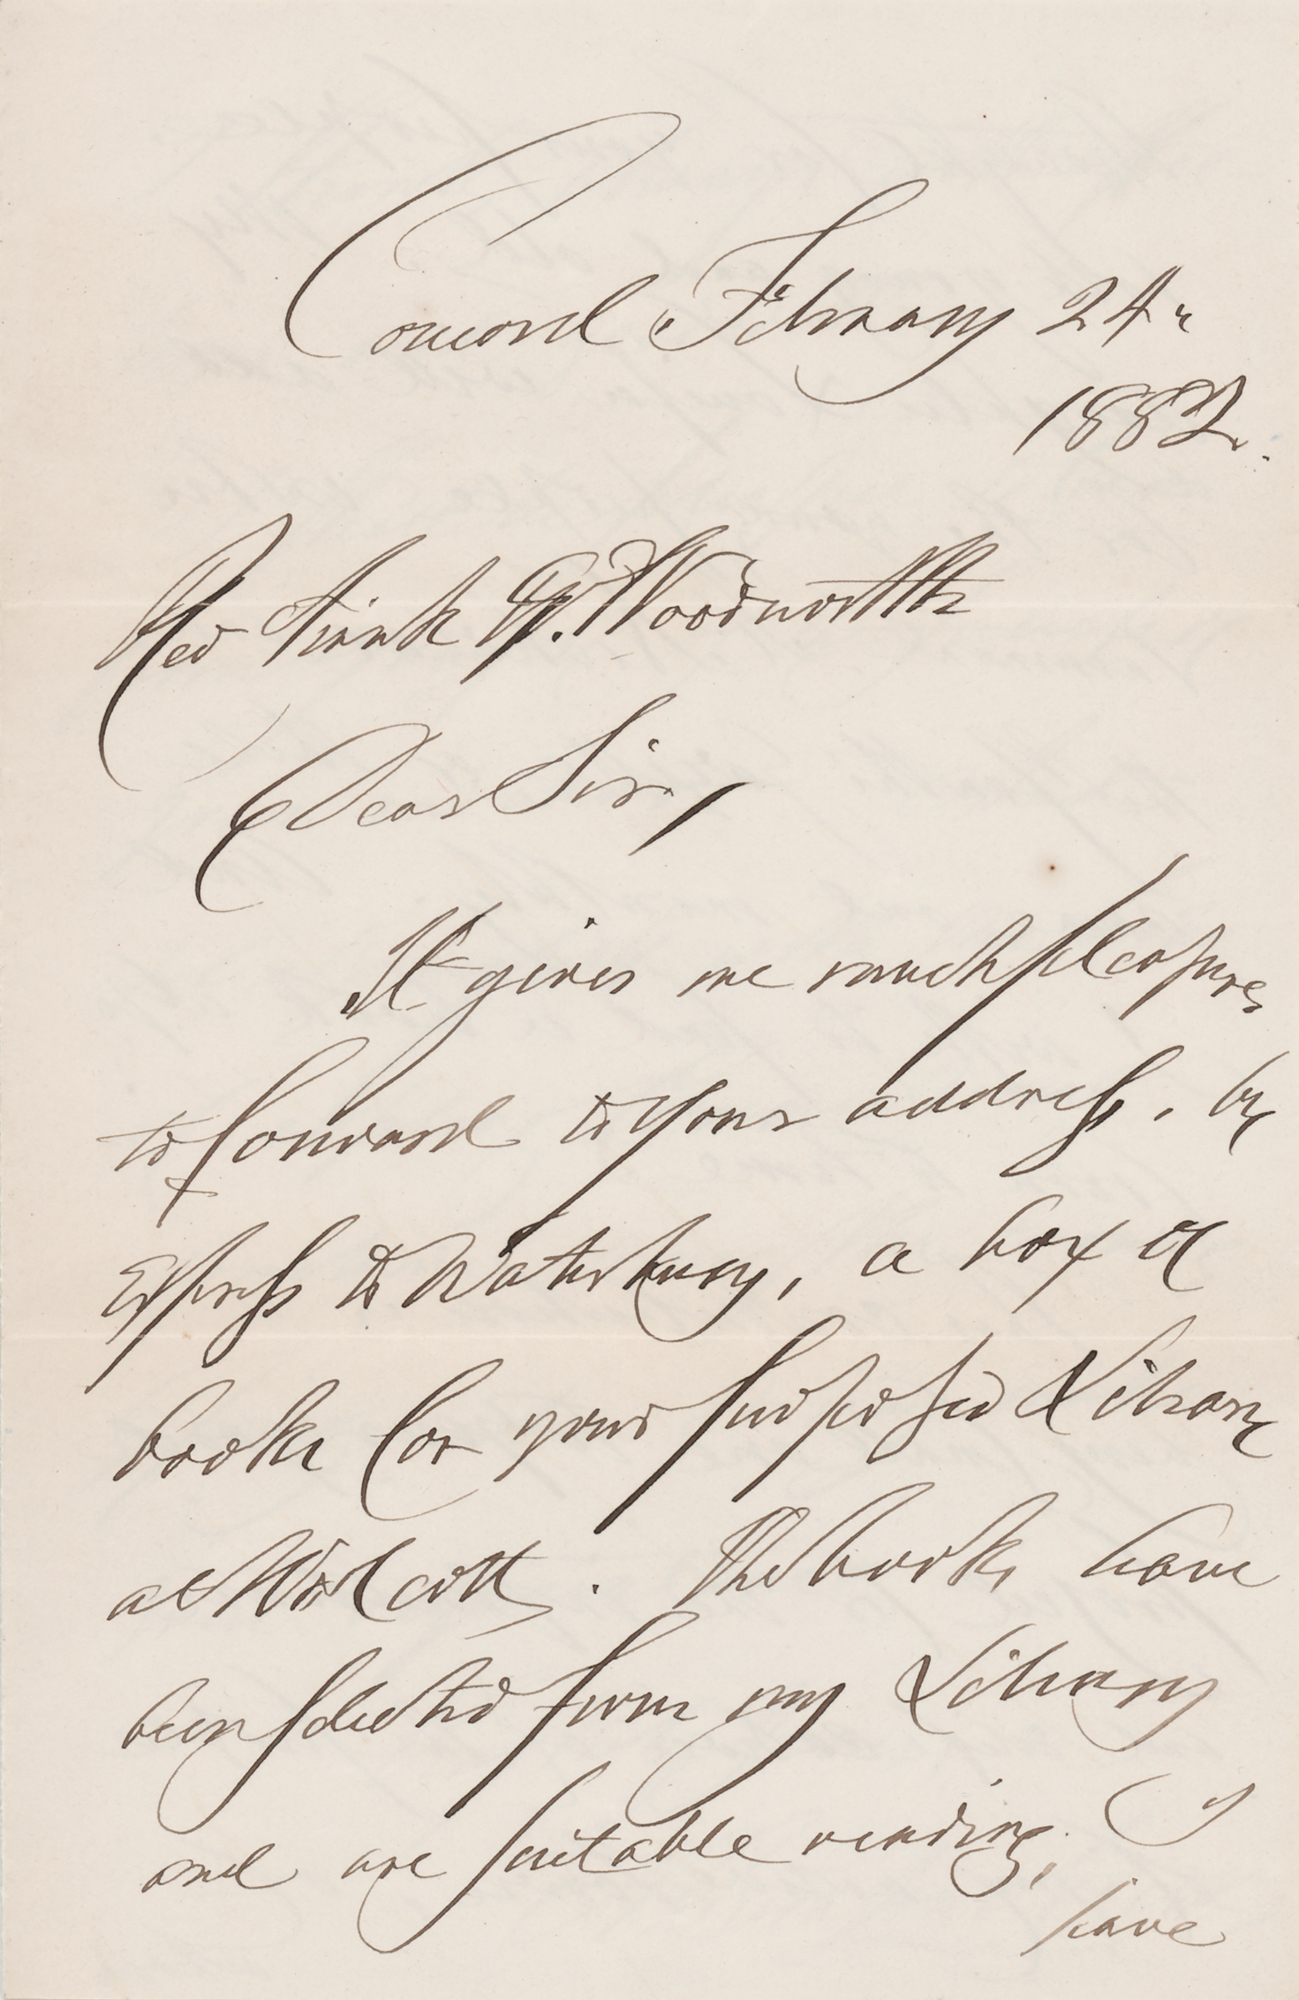 Concord, February 24"
1882.
Rev Frank W. Woodworth
Dear Sir,
It gives me much pleasure
to forward to your address, by
Express to Waterbury, a box of
books for your proposed Library
at Wolcott. The books have
been selected from my Library
and are suitable reading, I
have